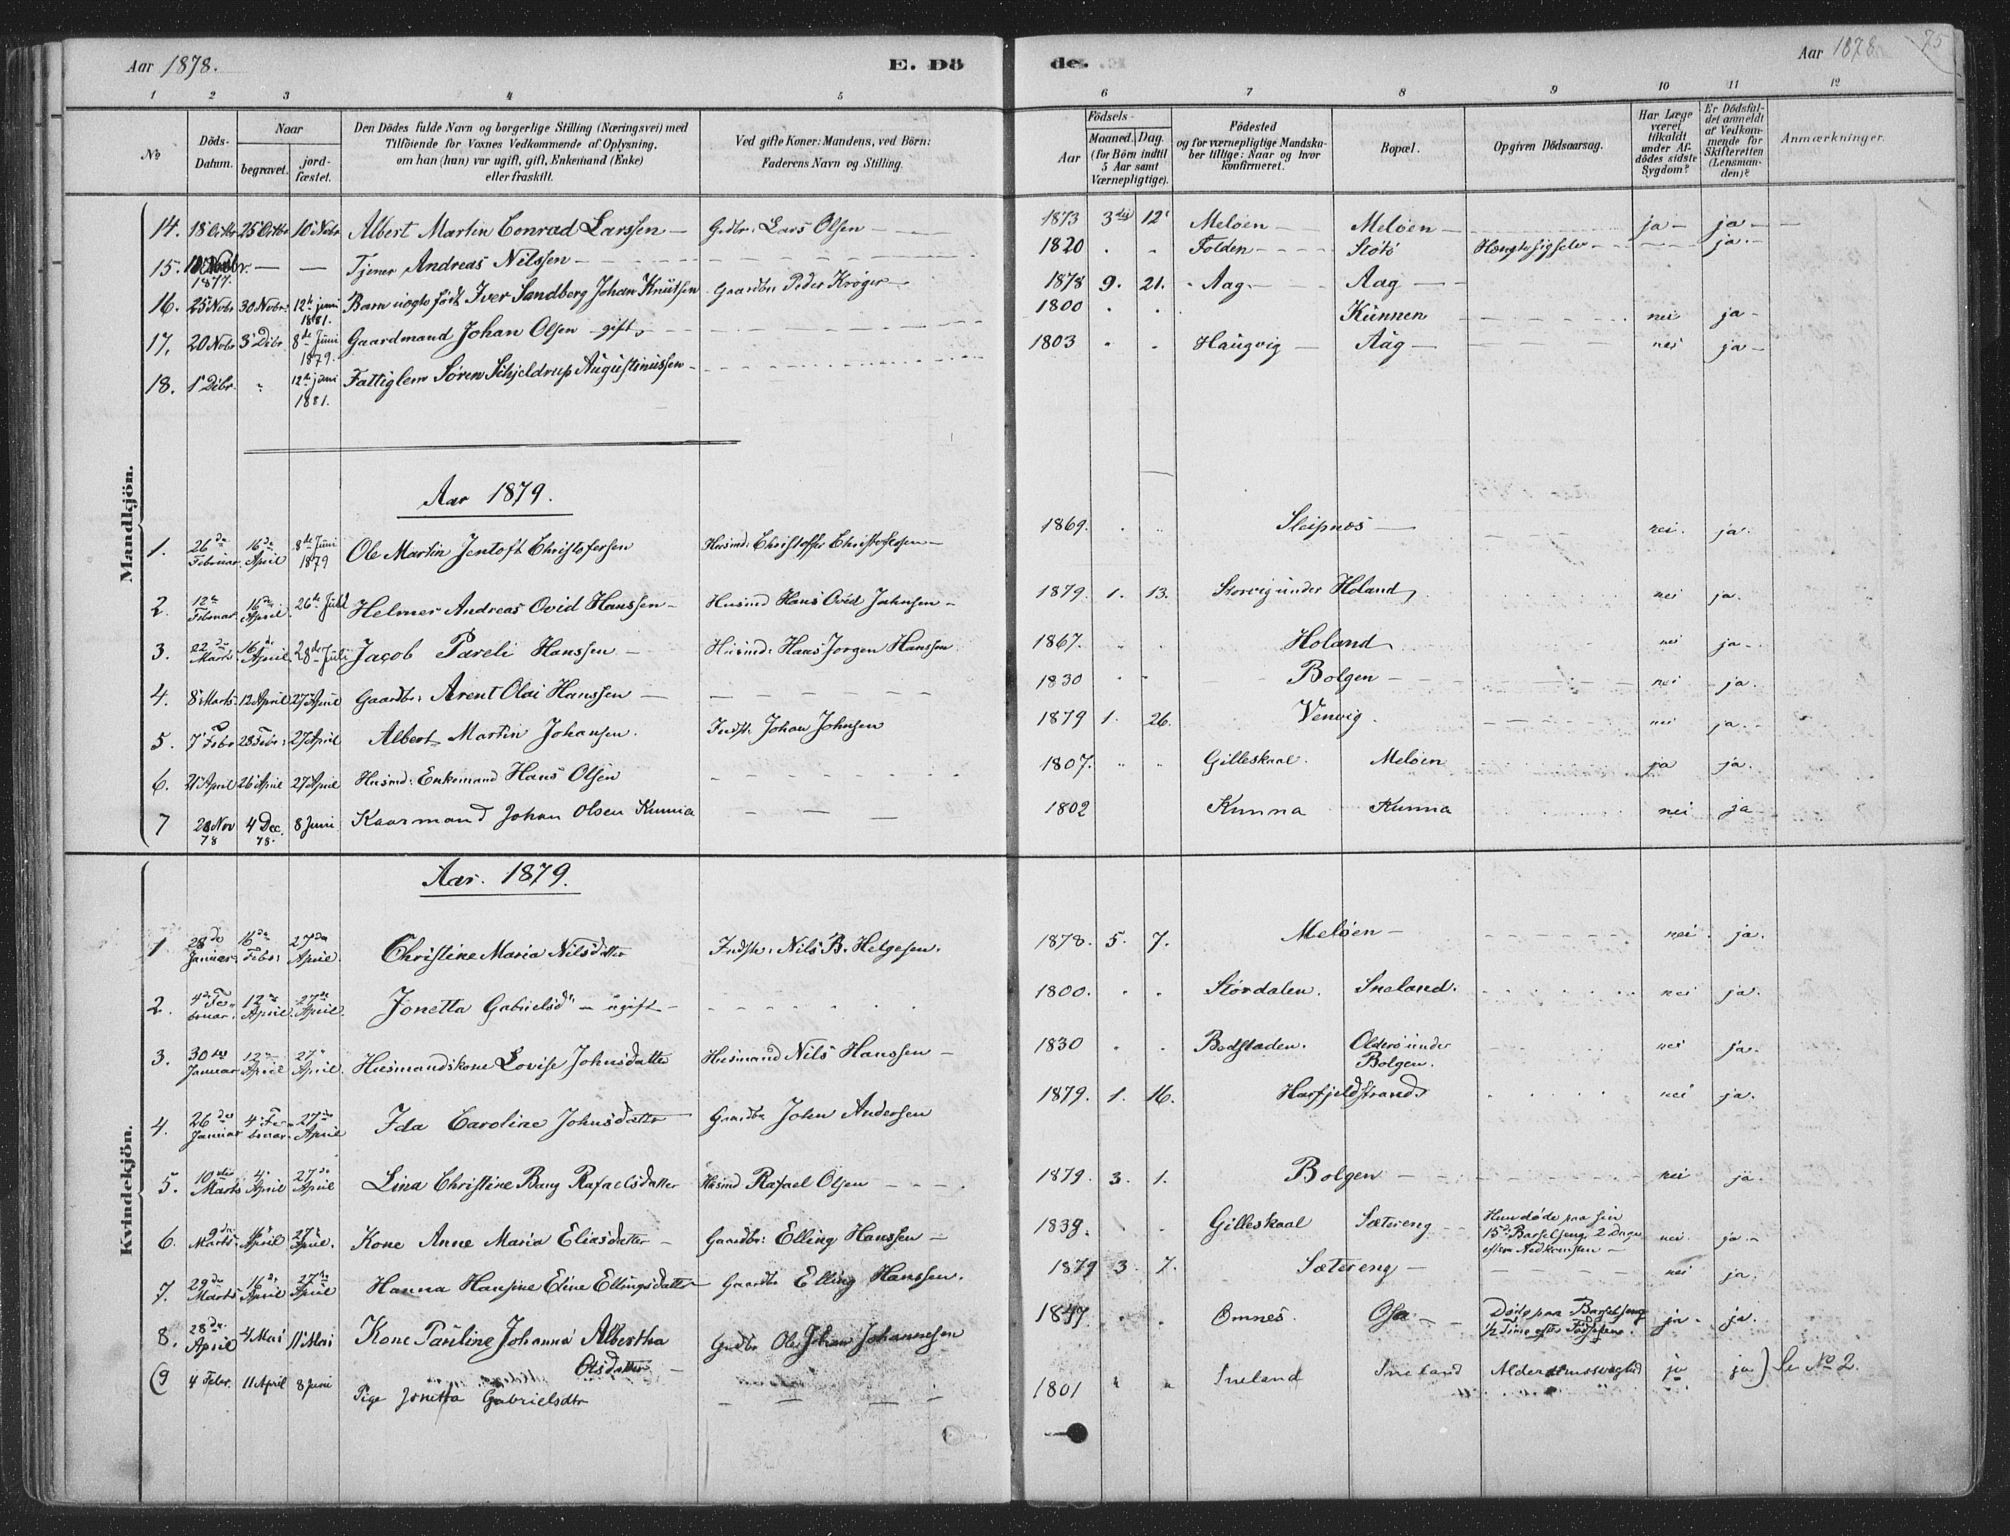 Aar 1878. E. Dö
de. Aar 1878 75
1 2 3 4 5
6 7 8 9 10 11 12
No Döds-Datum. Naar begravet. jord-fæstet. Den Dödes fulde Navn og borgerlige Stilling (Næringsvei) med Tilföiende for Voxnes Vedkommende af Oplysning, om han (hun) var ugift, gift, Enkemand (Enke) eller fraskilt. Ved gifte Koner: Mandens, ved Börn: Faderens Navn og Stilling.
Födsels- Aar Maaned. Dag. (for Börn indtil 5 Aar samt Værnepligtige). Födested og for værnepligtige Mandskaber tillige: Naar og hvor konfirmeret. Bopæl. Opgiven Dödsaarsag. Har Læge været tilkaldt under Afdödes sidste Sygdom? Er Dödsfaldet anmeldt af Vedkommende for Skifteretten (Lensmanden)? Anmærkninger.
Mandkjön.
14. 18 Octbr 25 Octbr 10 Nobr Albert Martin Conrad Larssen – Grdbr. Lars Olsen – 1873 3 die 12 Meløen – Meløen – ja – ja –
15. 1877. – – Tjener Andreas Nilssen – 1820 . . Folden – Støtt ja –
16. 25 Nobr 30 Nobr. 12te juni 1881. Barn uægte født Iver Sandberg Johan Knutsen Gaardbr Peder Krøger 1878 9. 21. Aag – Aag –
17. 20 Nobr 3 Dcbr. 8de Juni 1879. Gaardmand Johan Olsen – gift, 1800 . . Kunnen nei ja –
18. 1 Dcbr. " 12te juni 1881. Fattiglem Søren Schjeldrup Augustinussen – 1803 . . Haugvig – Aag – nei ja –
Aar 1879.
1. 26de Februar 16de April 8de Juni 1879 Ole Martin Jentoft Christofersen Husmd: Christoffer Christofersen – 1869. . . Sleipnes – nei. ja.
2. 12te Februar 16de April 26de Juli Helmer Andreas Ovid Hanssen – Husmd Hans Ovid Johnsen – 1879. 1. 13. Storvig under Holand, nei ja.
3. 22de Marts 16de April 28de Juli Jacob Pareli Hanssen – Husmd: Hans Jorgen Hanssen. 1867. . . Holand, nei ja –
4. 8 Marts 12 April 27 April Gaardbr: Arent Olai Hanssen – 1830 Bolgen – nei ja.
5. 7 Febr 23 Febr: 27 April Albert Martin Johansen. Indst. Johan Johnsen 1879 1. 26. Venvig. nei ja.
6. 21 April 26 April 27 April Husmd: Enkemand Hans Olsen 1807. " " Gilleskaal Meløen ja ja.
7 28 Nov 78 4 Dec. 78. 8 Juni Kaarmand Johan Olsen Kunna 1802 Kunna Kunna nei ja
Kvindekjön.
Aar. 1879.
1 28de Januar. 16de Febr: 27de April. Christine Maria Nilsdatter Indst: Nils B. Helgesen. 1878. 5. 7. Meløen – nei. ja.
2. 4de Februar. 12te April. 27de April. Jonetta Gabrielsdr – ugift – 1800. . . Størdalen. Sneland. nei ja.
3. 30te Januar 12te April 27 April. Husmandskone Lovise Johnsdatter Husmand Nils Hanssen – 1830 . . Bodstaden. Olderø under Bolgen. nei ja.
4. 26de Januar 4 Februar 27de April Ida Caroline Johnsdatter Gaardbr John Andersen 1879. 1. 16. Harfjeldstrand nei ja.
5. 10de Marts 4 April 27de April Lina Christine Bang Rafaelsdatter Husmd Rafael Olsen 1879. 3. 1. Bolgen – nei ja
6. 9de Marts April 27 April. Kone Anne Maria Eliasdatter – Gaardbr: Elling Hanssen – 1839. . . Gilleskaal Sætereng – Hun døde paa sin 15de Barselseng 2 Dage efter Nedkomsten – nei ja –
7. 29de Marts 16de April 27de April Hanna Hansine Eline Ellingsdatter Gaardbr Elling Hanssen. 1879 3. 7. Sætereng – nei ja.
8. 28de April 4 Mai 11 Mai Kone Pauline Johanna Albertha Olsdatter – Grdbr Ole Johan Johannesen 1847 . . Omnes. Osa – Død paa Barselseng 1/2 Time efter Fødselen. ja. ja.
(9 4 Febr. 11 April 8 Juni Pige Jonetta Gabrielsdtr 1801 " " Sneland Sneland Alderdomssvaghed ja ja ) Se No 2.